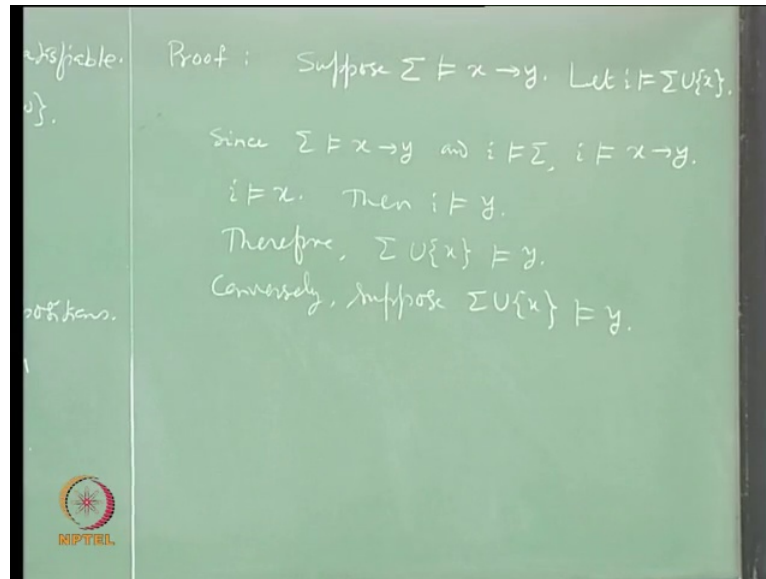 atisfiable.
Proof : Suppose Σ ⊨ x → y. Let i ⊨ Σ ∪ {x}.
}.
Since Σ ⊨ x → y and i ⊨ Σ, i ⊨ x → y.
i ⊨ x. Then i ⊨ y.
Therefore, Σ ∪ {x} ⊨ y.
Conversely, suppose Σ ∪ {x} ⊨ y.
ositions.
NPTEL